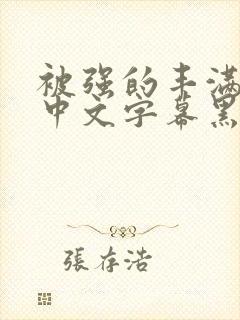 被强的丰满
中文字幕黑
張存浩